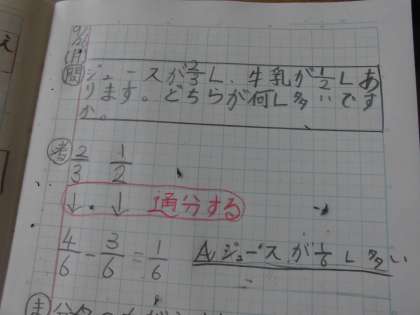 問 ジュースが2/3L、牛乳が1/2Lあ
ります。どちらが何L多いです
か。
考 2/3 1/2
↓ ・ ↓ 通分する
4/6 - 3/6 = 1/6 A ジュースが1/6L多い